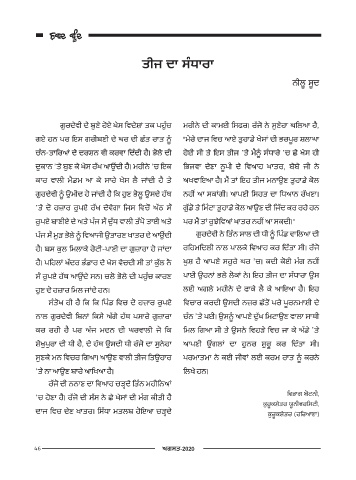 ਤੀਜ ਦਾ ਸੰਧਾਰਾ
ਨੀਲੂ ਸੂਦ
ਗੁਰਦੇਵੀ ਦੇ ਬੁਣੇ ਹੋਏ ਖੇਸ ਵਿਦੇਸ਼ਾਂ ਤਕ ਪਹੁੰਚ
ਗਏ ਹਨ ਪਰ ਇਸ ਗਰੀਬਣੀ ਦੇ ਘਰ ਦੀ ਛੱਤ ਰਾਤ ਨੂੰ
ਚੰਨ-ਤਾਰਿਆਂ ਦੇ ਦਰਸ਼ਨ ਵੀ ਕਰਵਾ ਦਿੰਦੀ ਹੈ। ਭੋਲੇ ਦੀ
ਦੁਕਾਨ 'ਤੇ ਬੁਣ ਕੇ ਖੇਸ ਰੱਖ ਆਉਂਦੀ ਹੈ। ਮਹੀਨੇ 'ਚ ਇਕ
ਕਾਰ ਵਾਲੀ ਮੈਡਮ ਆ ਕੇ ਸਾਰੇ ਖੇਸ ਲੈ ਜਾਂਦੀ ਹੈ ਤੇ
ਗੁਰਦੇਵੀ ਨੂੰ ਉਮੀਦ ਹੋ ਜਾਂਦੀ ਹੈ ਕਿ ਹੁਣ ਭੋਲੂ ਉਸਦੇ ਹੱਥ
'ਤੇ ਦੋ ਹਜ਼ਾਰ ਰੁਪਏ ਰੱਖ ਦੇਵੇਗਾ ਜਿਸ ਵਿਚੋਂ ਅੱਠ ਸੌ
ਰੁਪਏ ਬਾਣੀਏ ਦੇ ਅਤੇ ਪੰਜ ਸੌ ਦੁੱਧ ਵਾਲੀ ਤੱਪੇ ਤਾਈ ਅਤੇ
ਪੰਜ ਸੌ ਮੁੜ ਭੋਲੇ ਨੂੰ ਵਿਆਜੀ ਉਤਾਰਣ ਖਾਤਰ ਦੇ ਆਉਂਦੀ
ਹੈ। ਬਸ ਕੁਲ ਮਿਲਾਕੇ ਰੋਟੀ-ਪਾਣੀ ਦਾ ਗੁਜ਼ਾਰਾ ਹੋ ਜਾਂਦਾ
ਹੈ। ਪਹਿਲਾਂ ਅੰਦਰ ਭੰਡਾਰ ਦੇ ਖੇਸ ਵੇਚਦੀ ਸੀ ਤਾਂ ਕੁੱਲ ਨੌਂ
ਸੌ ਰੁਪਏ ਹੱਥ ਆਉਂਦੇ ਸਨ। ਚਲੋ ਭੋਲੇ ਦੀ ਪਹੁੰਚ ਕਾਰਣ
ਹੁਣ ਦੋ ਹਜ਼ਾਰ ਮਿਲ ਜਾਂਦੇ ਹਨ।
ਸੰਤੋਖ ਹੀ ਹੈ ਕਿ ਕਿ ਪਿੰਡ ਵਿਚ ਦੋ ਹਜ਼ਾਰ ਰੁਪਏ
ਨਾਲ ਗੁਰਦੇਵੀ ਬਿਨਾਂ ਕਿਸੇ ਅੱਗੇ ਹੱਥ ਪਸਾਰੇ ਗੁਜ਼ਾਰਾ
ਕਰ ਰਹੀ ਹੈ ਪਰ ਅੱਜ ਮਦਨ ਦੀ ਘਰਵਾਲੀ ਜੋ ਕਿ
ਸ਼ੇਖੂਪੁਰਾ ਦੀ ਧੀ ਹੈ, ਦੇ ਹੱਥ ਉਸਦੀ ਧੀ ਰੱਜੋ ਦਾ ਸੁਨੇਹਾ
ਸੁਣਕੇ ਮਨ ਵਿਚਰ ਗਿਆ। ਆਉਣ ਵਾਲੀ ਤੀਜ ਤਿਉਹਾਰ
'ਤੇ ਨਾ ਆਉਣ ਬਾਰੇ ਆਖਿਆ ਹੈ।
ਰੱਜੋ ਦੀ ਨਨਾਣ ਦਾ ਵਿਆਹ ਚੜ੍ਹਦੇ ਤਿੰਨ ਮਹੀਨਿਆਂ
'ਚ ਹੋਣਾ ਹੈ। ਰੱਜੋ ਦੀ ਸੱਸ ਨੇ ਛੇ ਖੇਸਾਂ ਦੀ ਮੰਗ ਕੀਤੀ ਹੈ
ਦਾਜ ਵਿਚ ਦੇਣ ਖਾਤਰ। ਸਿੱਧਾ ਮਤਲਬ ਹੋਇਆ ਚੜ੍ਹਦੇ
ਮਹੀਨੇ ਦੀ ਕਮਾਈ ਸਿਫਰ। ਰੱਜੋ ਨੇ ਸੁਨੇਹਾ ਘਲਿਆ ਹੈ,
"ਮੇਰੇ ਦਾਜ ਵਿਚ ਆਏ ਤੁਹਾਡੇ ਖੇਸਾਂ ਦੀ ਭਰਪੂਰ ਸ਼ਲਾਘਾ
ਹੋਈ ਸੀ ਤੇ ਇਸ ਤੀਜ 'ਤੇ ਮੈਨੂੰ ਸੰਧਾਰੇ 'ਚ ਛੇ ਖੇਸ ਹੀ
ਭਿਜਵਾ ਦੇਣਾ ਨੂਪੀ ਦੇ ਵਿਆਹ ਖਾਤਰ, ਬੀਬੀ ਜੀ ਨੇ
ਅਖਵਾਇਆ ਹੈ। ਮੈਂ ਤਾਂ ਇਹ ਤੀਜ ਮਨਾਉਣ ਤੁਹਾਡੇ ਕੋਲ
ਨਹੀਂ ਆ ਸਕਾਂਗੀ। ਆਪਣੀ ਸਿਹਤ ਦਾ ਧਿਆਨ ਰੱਖਣਾ।
ਗੁੱਡੋ ਤੇ ਮਿੰਟਾ ਤੁਹਾਡੇ ਕੋਲ ਆਉਣ ਦੀ ਜਿੱਦ ਕਰ ਰਹੇ ਹਨ
ਪਰ ਮੈਂ ਤਾਂ ਰੁਝੇਵਿਆਂ ਖਾਤਰ ਨਹੀਂ ਆ ਸਕਦੀ।"
ਗੁਰਦੇਵੀ ਨੇ ਤਿੰਨ ਸਾਲ ਦੀ ਧੀ ਨੂੰ ਪਿੰਡ ਵਾਲਿਆਂ ਦੀ
ਰਹਿਮਦਿਲੀ ਨਾਲ ਪਾਲਕੇ ਵਿਆਹ ਕਰ ਦਿੱਤਾ ਸੀ। ਰੱਜੋ
ਖੁਸ਼ ਹੈ ਆਪਣੇ ਸਹੁਰੇ ਘਰ 'ਚ। ਕਦੀ ਕੋਈ ਮੰਗ ਨਹੀਂ
ਪਾਈ ਉਹਨਾਂ ਭਲੇ ਲੋਕਾਂ ਨੇ। ਇਹ ਤੀਜ ਦਾ ਸੰਧਾਰਾ ਉਸ
ਲਈ ਅਗਲੇ ਮਹੀਨੇ ਦੇ ਫਾਕੇ ਲੈ ਕੇ ਆਇਆ ਹੈ। ਇਹ
ਵਿਚਾਰ ਕਰਦੀ ਉਸਦੀ ਨਜ਼ਰ ਛੱਤੋਂ ਪਰੇ ਪੂਰਨਮਾਸ਼ੀ ਦੇ
ਚੰਨ 'ਤੇ ਪਈ। ਉਸਨੂੰ ਆਪਣੇ ਦੁੱਖ ਮਿਟਾਉਣ ਵਾਲਾ ਸਾਥੀ
ਮਿਲ ਗਿਆ ਸੀ ਤੇ ਉਸਨੇ ਵਿਹੜੇ ਵਿਚ ਜਾ ਕੇ ਅੱਡੇ 'ਤੇ
ਆਪਣੀ ਉਂਗਲਾਂ ਦਾ ਹੁਨਰ ਸ਼ੁਰੂ ਕਰ ਦਿੱਤਾ ਸੀ।
ਪਰਮਾਤਮਾ ਨੇ ਕਈ ਜੀਵਾਂ ਲਈ ਕਰਮ ਰਾਤ ਨੂੰ ਕਰਨੇ
ਲਿਖੇ ਹਨ।
ਵਿਭਾਗ ਬੋਟਨੀ,
ਕੁਰੂਕਸ਼ੇਤਰ ਯੂਨੀਵਰਸਿਟੀ,
ਕੁਰੂਕਸ਼ੇਤਰ (ਹਰਿਆਣਾ)
46
ਅਗਸਤ-2020